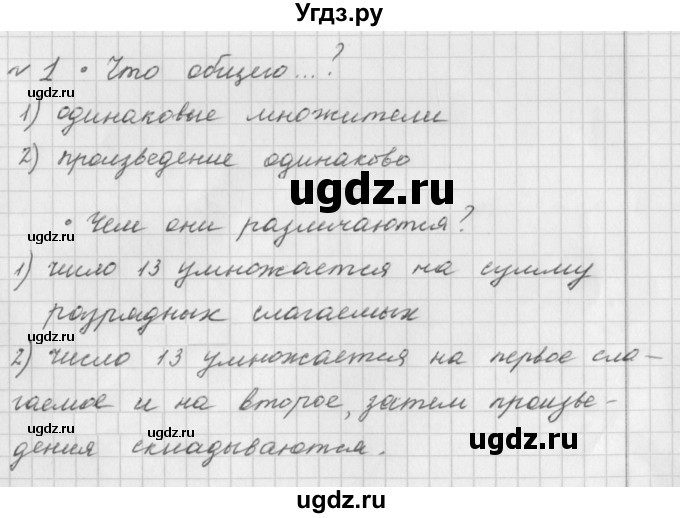 Угдз.ру
№ 1 • Что общего...?
1) одинаковые множители
ugdz.ru
2) произведение одинаково
ugdz.ru
ugdz.ru
• Чем они различаются?
ugdz.ru
1) число 13 умножается на сумму
разрядных слагаемых
ugdz.ru
ugdz.ru
2) число 13 умножается на первое сла-
гаемое и на второе, затем произве-
ugdz.ru
ugdz.ru
ugdz.ru
дения складываются.
ugdz.ru